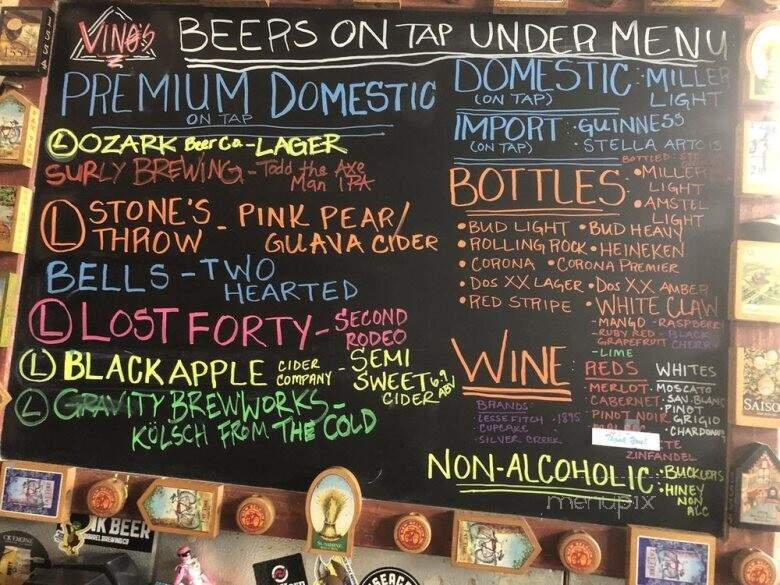 VINO'S BEERS ON TAP UNDER MENU
PREMIUM DOMESTIC
ON TAP
Ⓛ OZARK Beer Co. - LAGER
SURLY BREWING - Todd the Axe
Man IPA
Ⓛ STONE'S
THROW - PINK PEAR/
GUAVA CIDER
BELLS - TWO
HEARTED
Ⓛ LOST FORTY - SECOND
RODEO
Ⓛ BLACK APPLE CIDER
COMPANY - SEMI
SWEET 6.9
CIDER ABV
Ⓛ GRAVITY BREWWORKS -
KÖLSCH FROM THE COLD
DOMESTIC : MILLER
(ON TAP) LIGHT
IMPORT : GUINNESS
(ON TAP) STELLA ARTOIS
BOTTLED
BOTTLES: • MILLER
LIGHT
• AMSTEL
LIGHT
• BUD LIGHT • BUD HEAVY
• ROLLING ROCK • HEINEKEN
• CORONA • CORONA PREMIER
• DOS XX LAGER • DOS XX AMBER
• RED STRIPE • WHITE CLAW
- MANGO - RASPBERRY
- RUBY RED - BLACK
GRAPEFRUIT CHERRY
- LIME
WINE: REDS WHITES
MERLOT • MOSCATO
CABERNET • SAV. BLANC
PINOT NOIR • PINOT
GRIGIO
• CHARDONNAY
Thank You!
ZINFANDEL
BRANDS
1895
CUPCAKE
- SILVER CREEK
NON-ALCOHOLIC : • BUCKLERS
• HINEY
NON
ALC
menupix
BEER
BARREL BREWING CO
SUNSHINE
SAISO